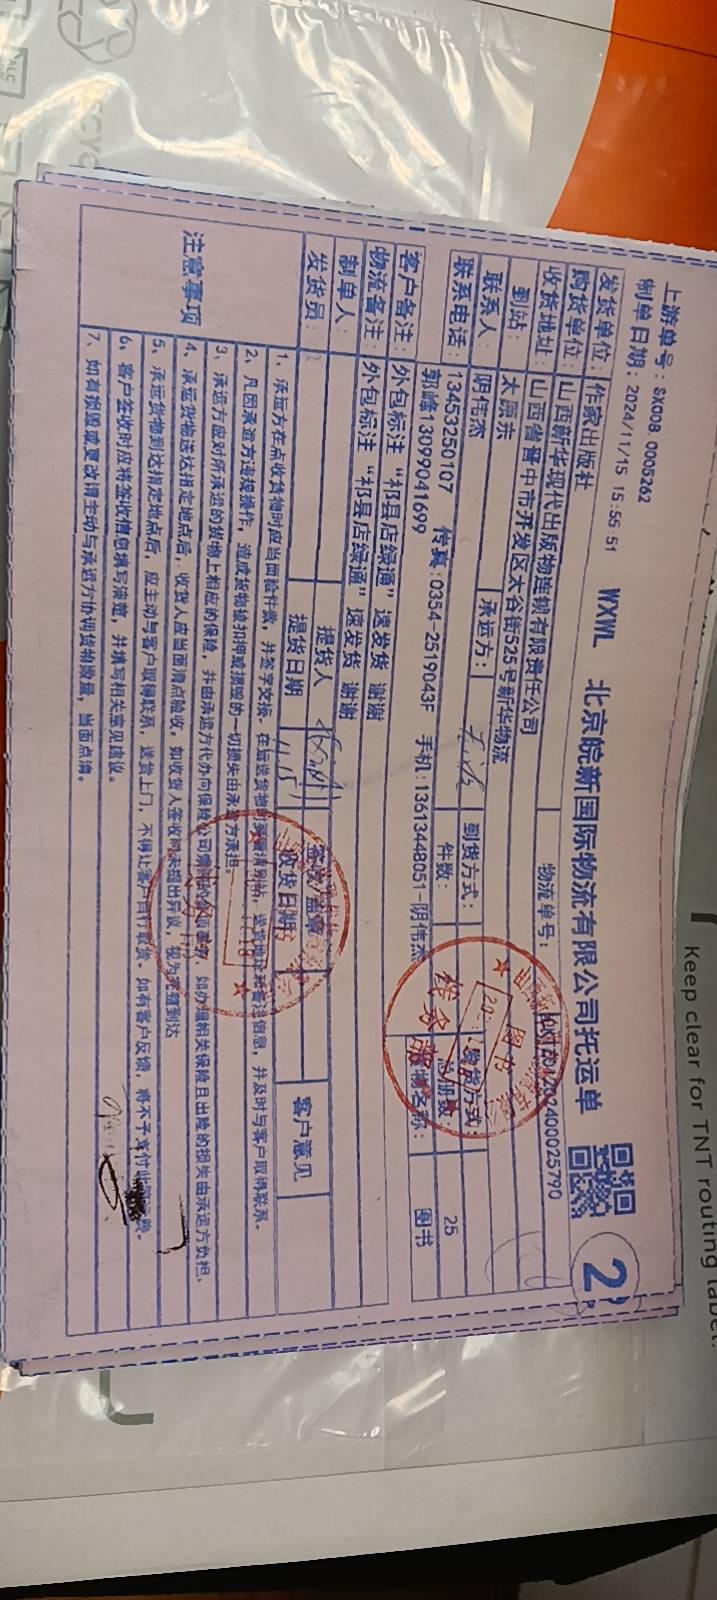 Keep clear for TNT routing label.
上游单号：SK00B_0005262
制单日期：2024/11/15 15:55:51
WXWL 北京皖新国际物流有限公司托运单
2
发货单位：作家出版社
物流单号：
购货单位：山西新华现代出版物连锁有限责任公司
收货地址：山西省晋中市开发区大谷街525号新华物流
到站：太原东
联系人：阴伟杰
承运方：
到货方式：
联系电话：13453250107 传真：0354-2519043F 手机：13613448051-阴伟杰
郭峰13099041699
件数：
25
图书
客户备注：外包标注“祁县店绿通”速发货 谢谢
物流备注：外包标注“祁县店绿通”速发货 谢谢
制单人：
提货人
客户意见
发货员：
提货日期
11.15
收货日期
注意事项
1、承运方在点收货物时应当面验件数，并签字交接。
2、凡因承运方违规操作，造成货物被扣押或损毁的一切损失由承运方承担。
3、承运方应对所承运的货物上相应的保险，并由承运方代办向保险公司
如办理相关保险且出险的损失由承运方负担。
4、承运货物送达指定地点后，收货人应当面清点验收，如收货人签收时未提出异议，视为完整到达
5、承运货物到达指定地点后，应主动与客户取得联系，送货上门，不得让客户自行取货。如有客户反馈，将不予支付此
6、客户签收时应将签收信息填写清楚，并填写相关意见建议。
7、如有损毁或更改请主动与承运方协调货物数量，当面点清。